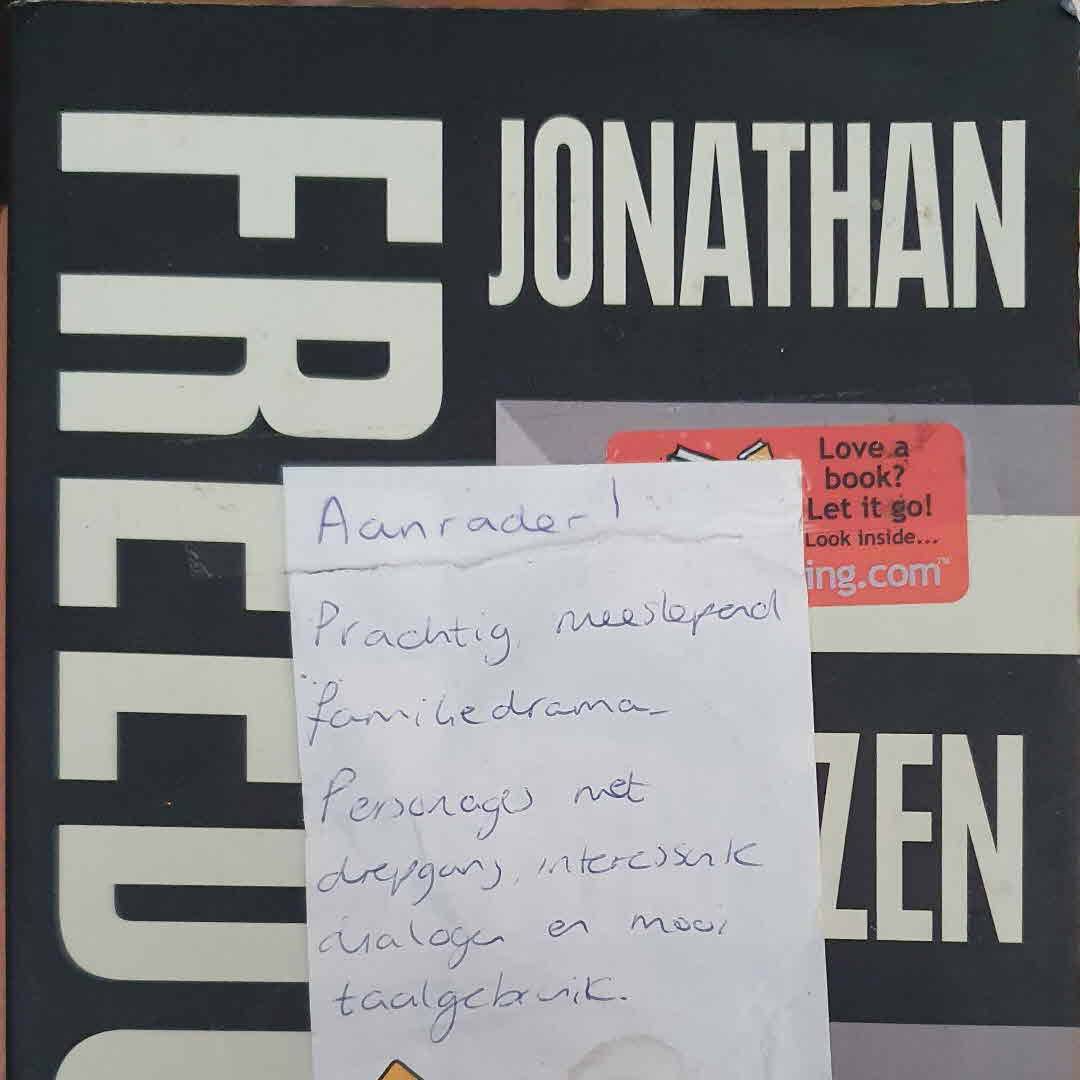 JONATHAN
FREEDO
Love a
book?
Let it go!
Look inside...
ing.com™
ZEN
Aanrader!
Prachtig, meeslepend
familiedrama.
Personages met
diepgang, interessante
dialogen en mooi
taalgebruik.